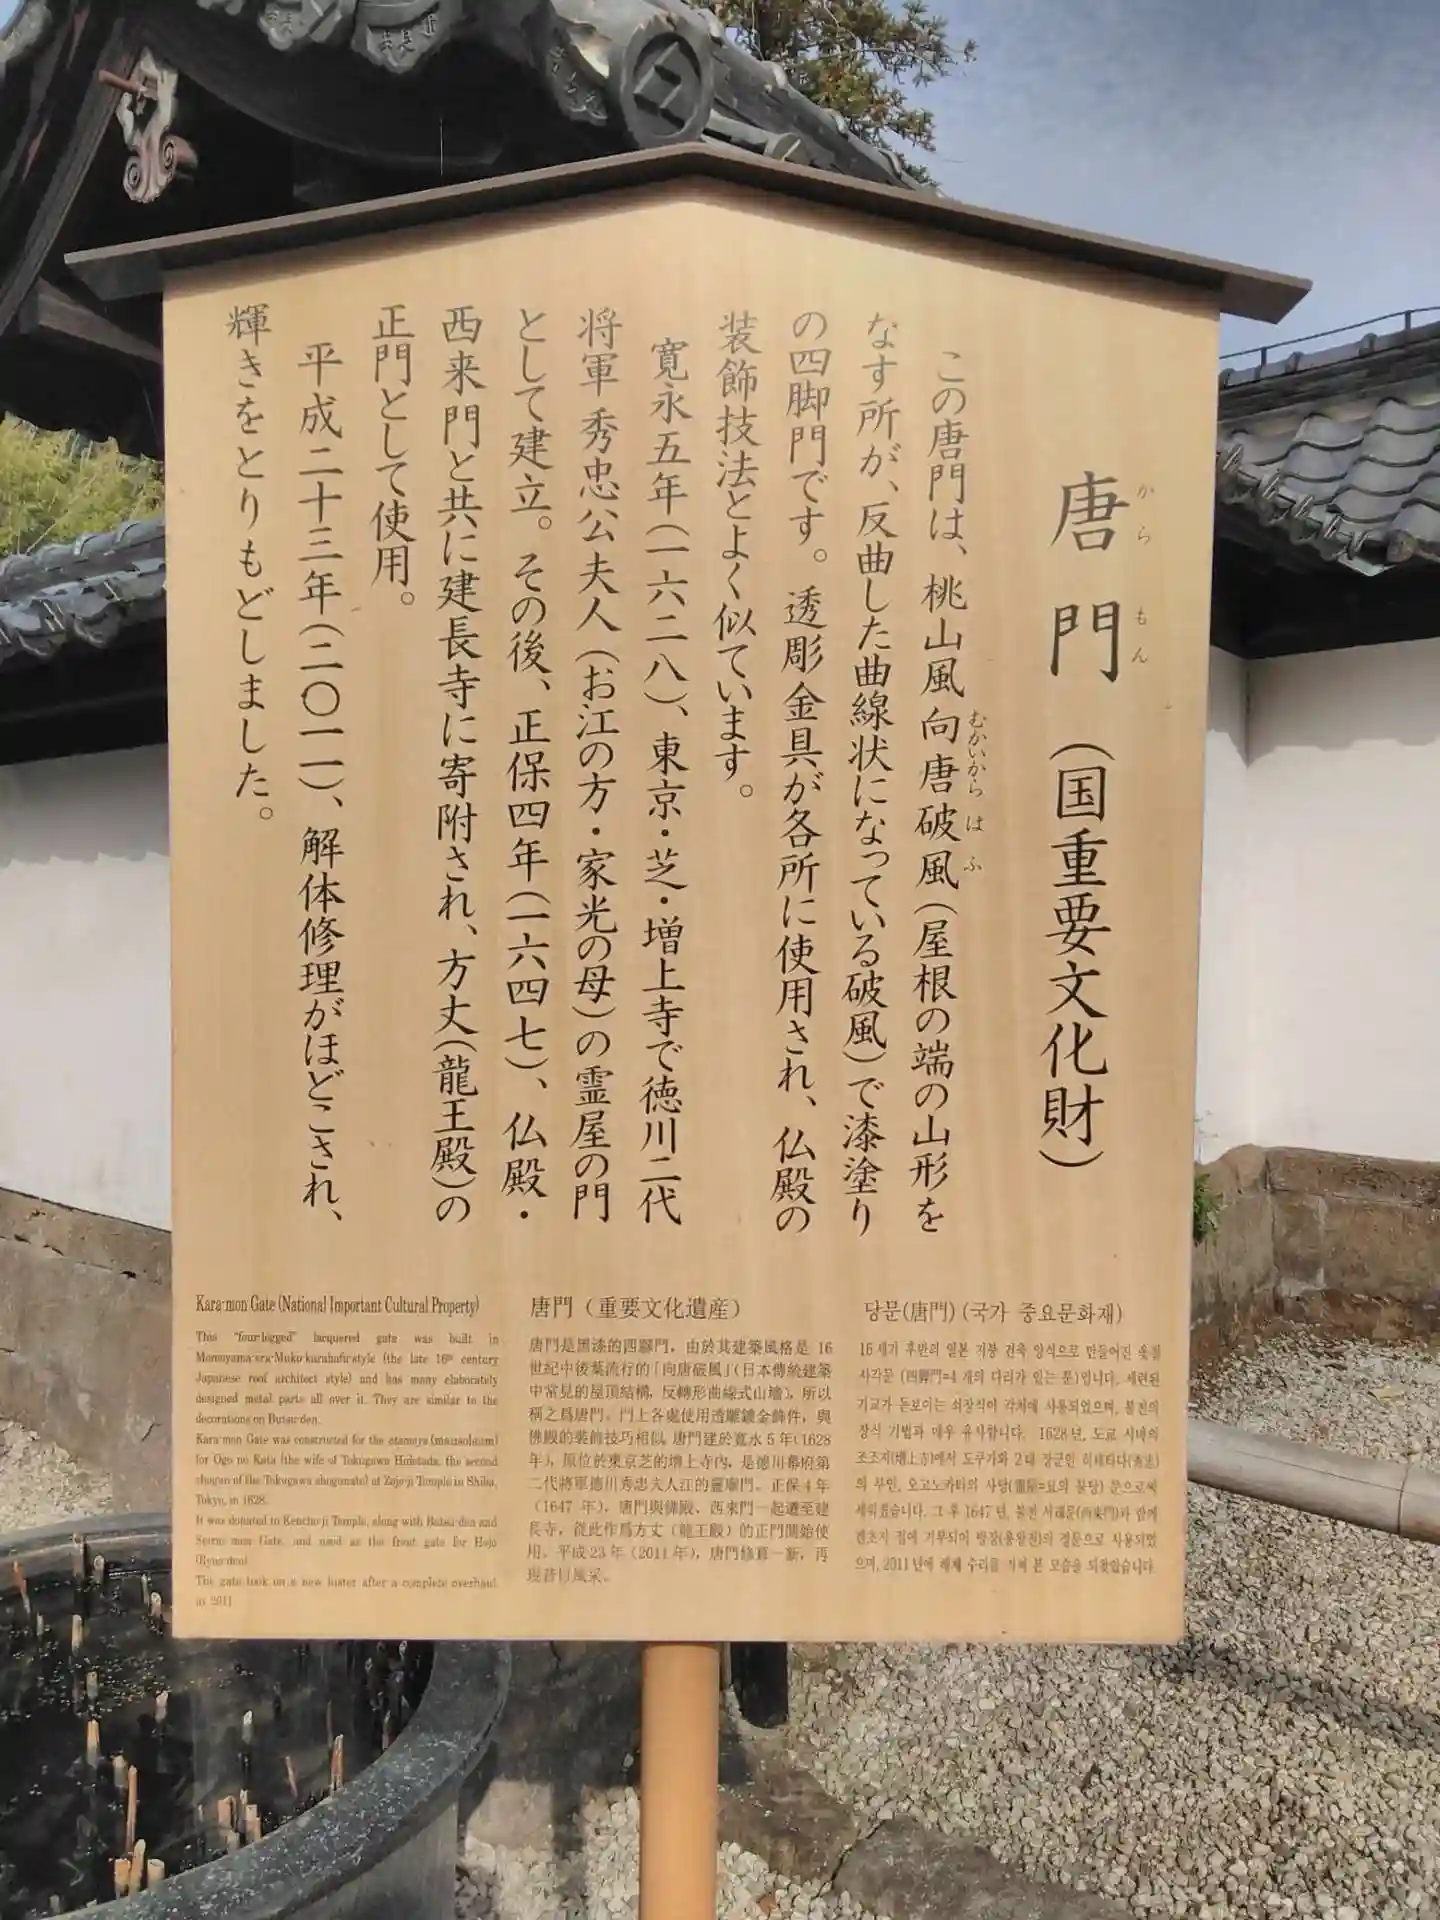 唐門（国重要文化財）
からもん
この唐門は、桃山風向唐破風（屋根の端の山形を
むかいからはふ
なす所が、反曲した曲線状になっている破風）で漆塗り
の四脚門です。透彫金具が各所に使用され、仏殿の
装飾技法とよく似ています。
寛永五年（一六二八）、東京・芝・増上寺で徳川二代
将軍秀忠公夫人（お江の方・家光の母）の霊屋の門
として建立。その後、正保四年（一六四七）、仏殿・
西来門と共に建長寺に寄附され、方丈（龍王殿）の
正門として使用。
平成二十三年（二〇一一）、解体修理がほどこされ、
輝きをとりもどしました。
Kara-mon Gate (National Important Cultural Property)
This "four-legged" lacquered gate was built in
Momoyama-era-Muko-karahafu-style (the late 16th century
Japanese roof architect style) and has many elaborately
designed metal parts all over it. They are similar to the
decorations on Butsu-den.
Kara-mon Gate was constructed for the otamaya (mausoleum)
for Ogo no Kata (the wife of Tokugawa Hidetada, the second
shogun of the Tokugawa shogunate) at Zojo-ji Temple in Shiba,
Tokyo, in 1628.
It was donated to Kencho-ji Temple, along with Butsu-den and
Seirai-mon Gate, and used as the front gate for Hojo
(Ryuo-den).
The gate took on a new luster after a complete overhaul
in 2011.
唐門（重要文化遺産）
唐門是黑漆的四腳門，由於其建築風格是 16
世紀中後葉流行的「向唐破風」（日本傳統建築
中常見的屋頂結構，反轉形曲線式山墻），所以
稱之爲唐門。門上各處使用透雕鍍金飾件，與
佛殿的裝飾技巧相似。唐門建於寬永 5 年（1628
年），原位於東京芝的增上寺內，是德川幕府第
二代將軍德川秀忠夫人江的靈廟門。正保 4 年
（1647 年），唐門與佛殿、西來門一起遷至建
長寺，從此作爲方丈（龍王殿）的正門開始使
用。平成 23 年（2011 年），唐門修葺一新，再
現昔日風采。
당문(唐門) (국가 중요문화재)
16 세기 후반의 일본 지붕 건축 양식으로 만들어진 옻칠
사각문 (四脚門=4 개의 다리가 있는 문)입니다. 세련된
기교가 돋보이는 쇠장식이 각처에 사용되었으며, 불전의
장식 기법과 매우 유사합니다. 1628 년, 도쿄 시바의
조조지(增上寺)에서 도쿠가와 2 대 장군인 히데타다(秀忠)
의 부인, 오고노카타의 사당(靈屋=묘의 불당) 문으로써
세워졌습니다. 그 후 1647 년, 불전 서래문(西來門)과 함께
겐초지 절에 기부되어 방장(용왕전)의 정문으로 사용되었
으며, 2011 년에 해체 수리를 거쳐 본 모습을 되찾았습니다.